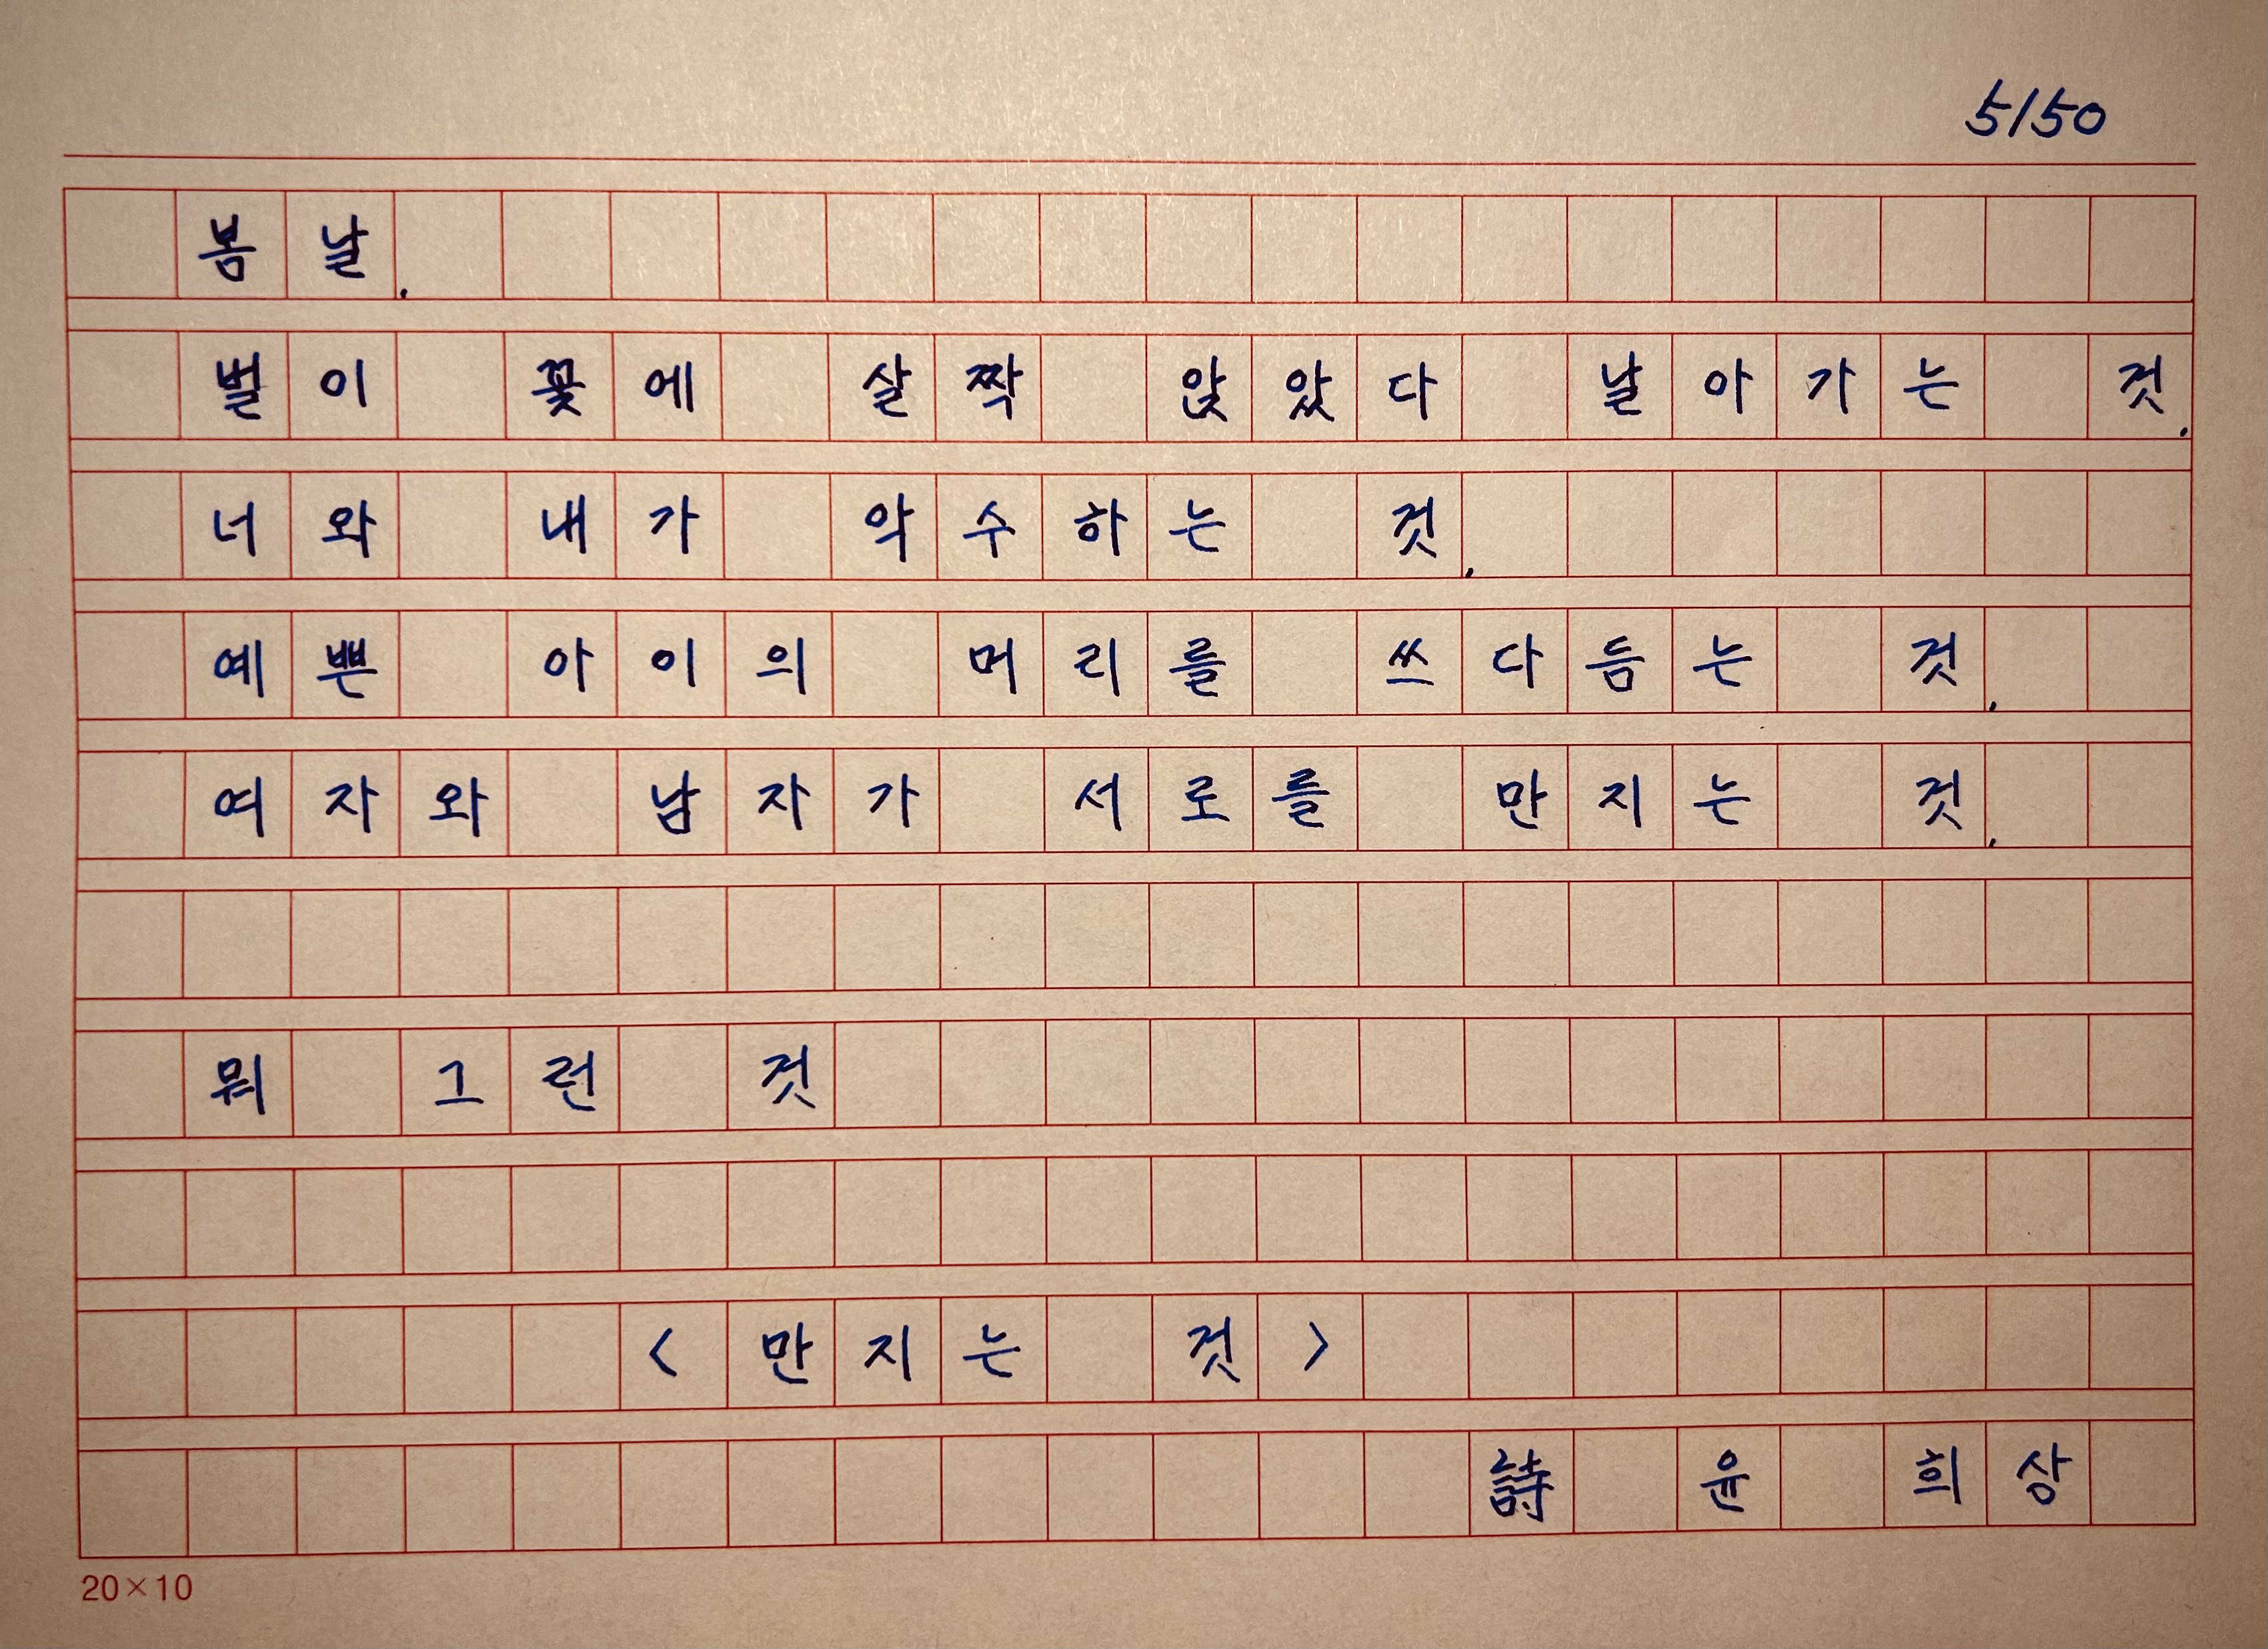 5/50
봄날.
벌이 꽃에 살짝 앉았다 날아가는 것.
너와 내가 악수하는 것.
예쁜 아이의 머리를 쓰다듬는 것.
여자와 남자가 서로를 만지는 것.
뭐 그런 것
<만지는 것>
詩 윤 희상
20×10